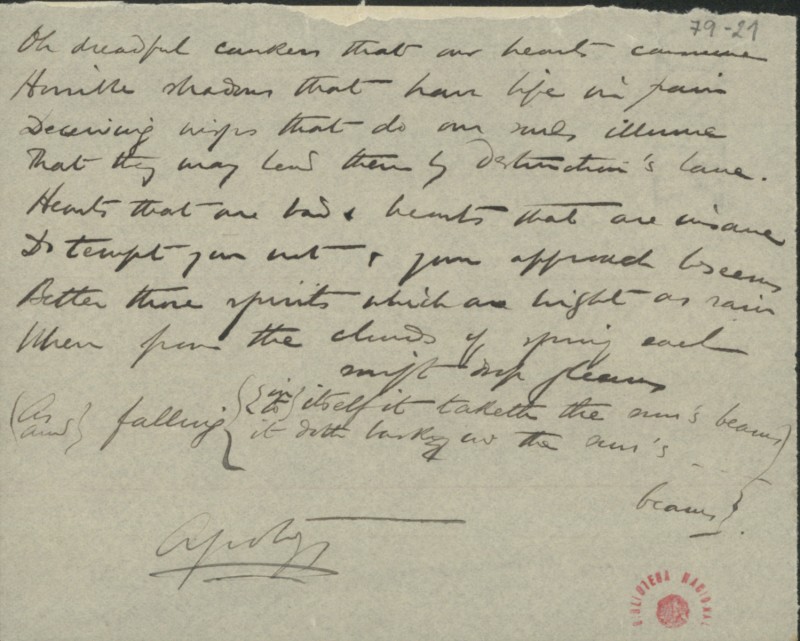 79-21
Oh dreadful cankers that our hearts consume
Horrible shadows that have life in pain
Deceiving wisps that do our souls illume
That they may lead them by Destruction's lane.
Hearts that are bad & hearts that are insane
Do tempt you not & your approach beseems
Better those spirits which are bright as rain
When from the clouds of spring each
swift drop gleams
(As and) falling {{in to} itself it taketh the sun's beams}
it doth bask in the sun's
beams}.
BIBLIOTECA NACIONAL